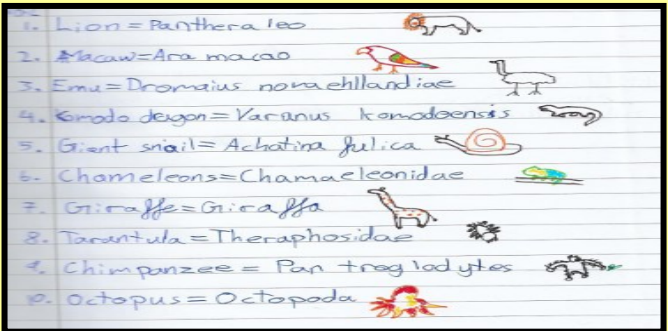 1. Lion = Panthera leo
2. Macaw = Ara macao
3. Emu = Dromaius novaehllandiae
4. Komodo deragon = Varanus komodoensis
5. Giant snail = Achatina fulica
6. Chameleons = Chamaeleonidae
7. Giraffe = Giraffa
8. Tarantula = Theraphosidae
9. Chimpanzee = Pan troglodytes
10. Octopus = Octopoda